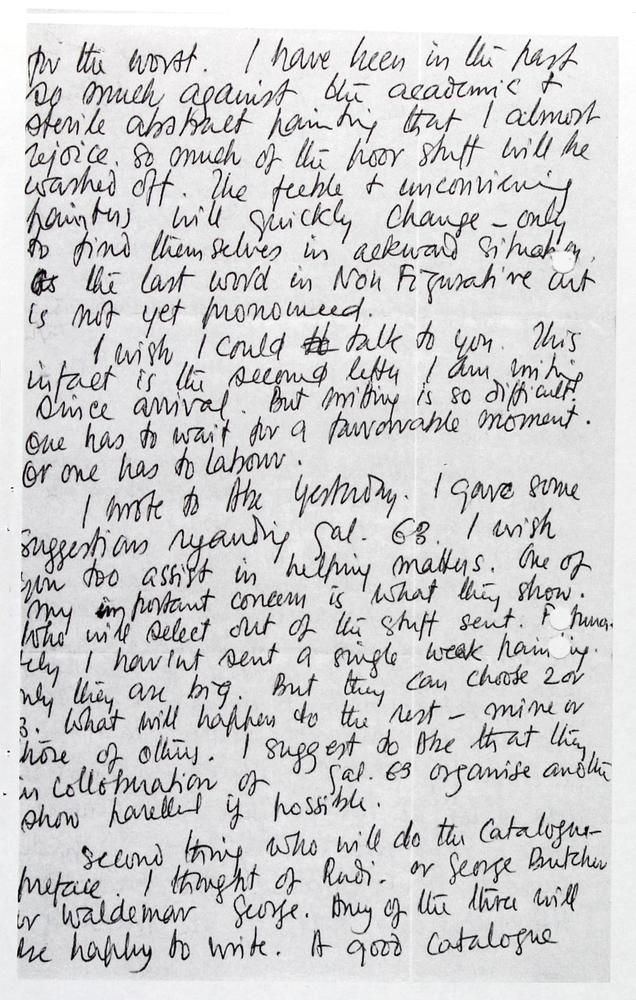 for the worst. I have been in the past
so much against the academic +
sterile abstract painting that I almost
rejoice. So much of the poor stuff will be
washed off. The feeble + unconvincing
painters will quickly change - only
to find themselves in ackward situation.
as the last word in Non Figurative art
is not yet pronounced.
I wish I could talk to you. This
infact is the second letter I am writing
since arrival. But writing is so difficult.
one has to wait for a favourable moment.
or one has to labour.
I wrote to Abe yesterday. I gave some
suggestions regarding Gal. 63. I wish
you too assist in helping matters. One of
my important concern is what they show.
Who will select out of the stuff sent. Fortuna-
tely I havint sent a single weak painting.
only they are big. But they can choose 2 or
3. What will happen to the rest - mine or
those of others. I suggest to Abe that they
in colloboration of Gal. 63 organise another
show parellel if possible.
Second thing who will do the Catalogue-
preface. I thought of Rudi. or George Butcher
or Waldemar George. Any of the three will
be happy to write. A good Catalogue